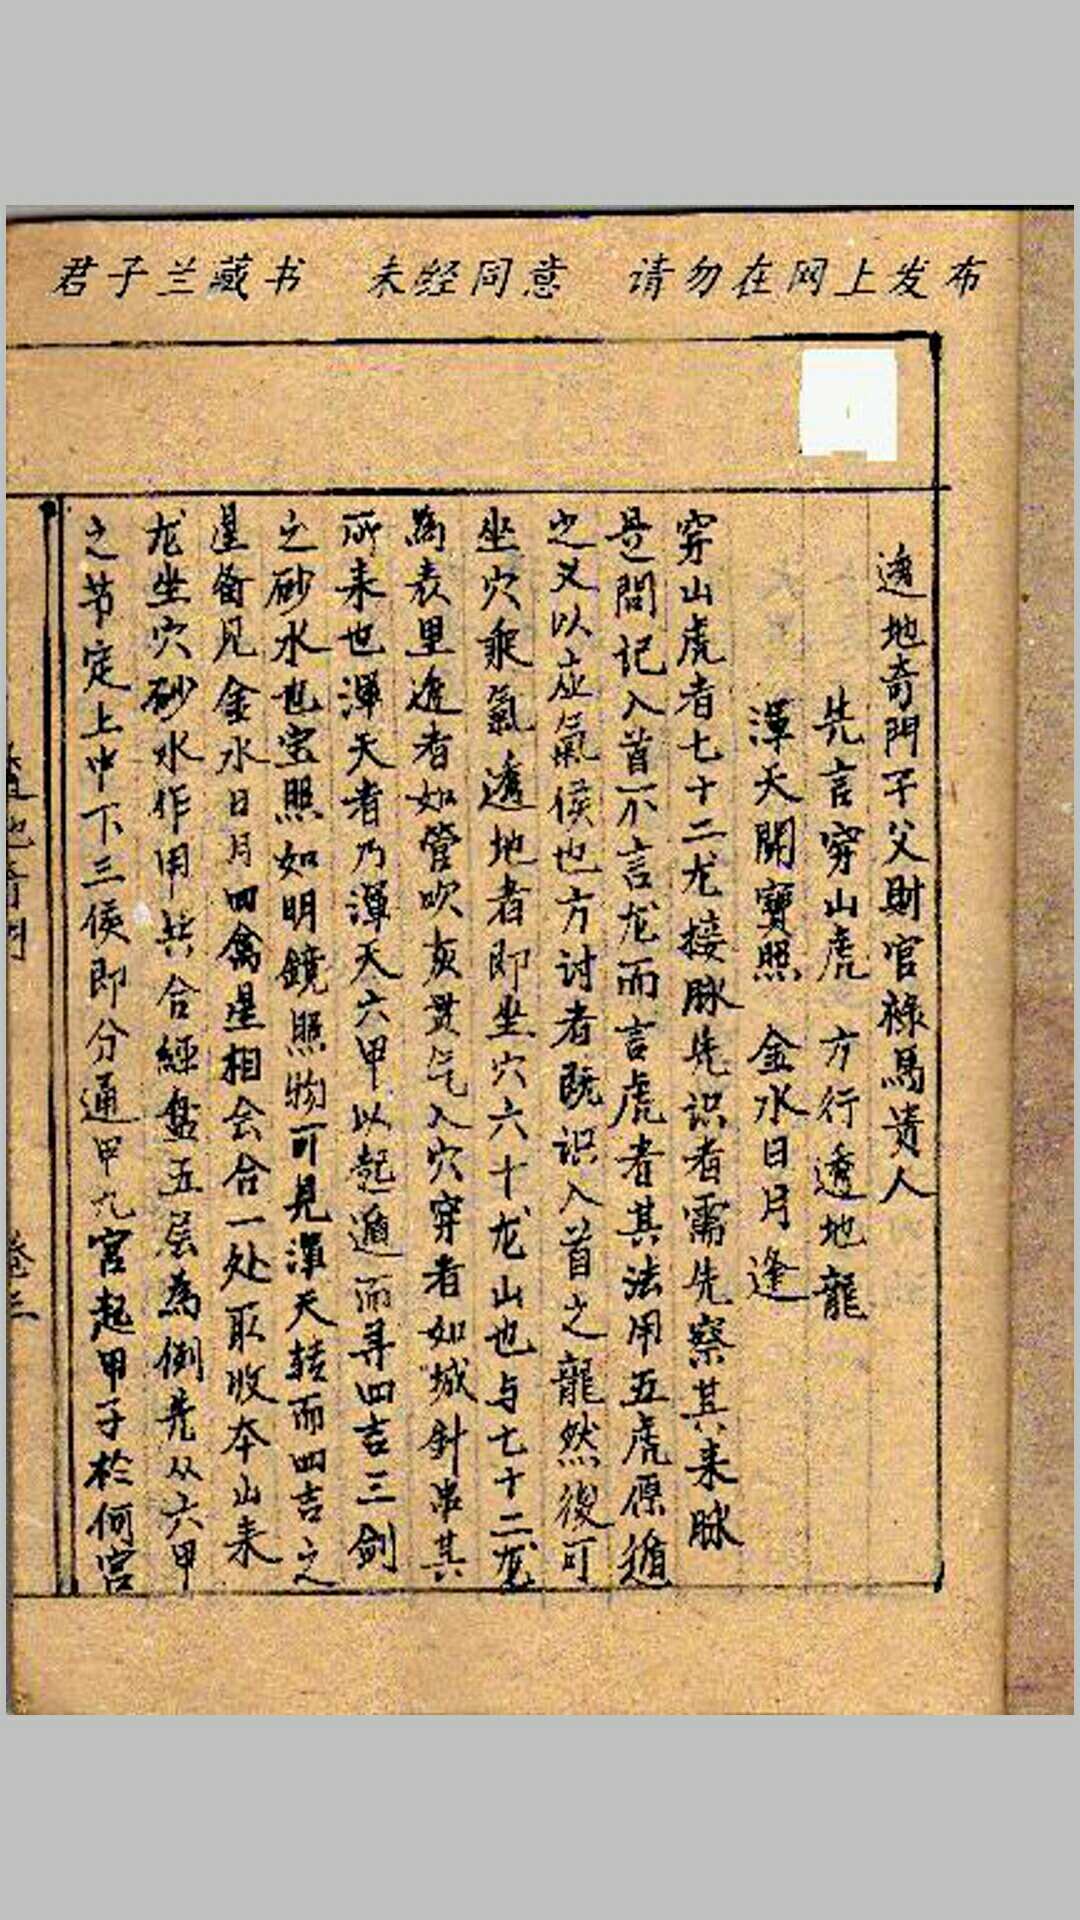 君子兰藏书 未经同意 请勿在网上发布
透地奇門子父財官祿馬貴人
先言穿山虎 方行透地龍
渾天開寶照 金水日月逢
穿山虎者七十二龙接脉先识者需先察其来脉
是問记入首不言龙而言虎者其法用五虎原遁
之义以应氣侯也方讨者既识入首之龍然後可
坐穴乘氣透地者即坐穴六十龙山也与七十二龙
為表里透者如管吹灰贯气入穴穿者如城針串其
所来也渾天者乃渾天六甲以起遁而寻四吉三剑
之砂水也宝照如明鏡照物可見渾天转而四吉之
星备见金水日月四禽星相会合一处取收本山来
龙坐穴砂水作用共合經盘五层為例先从六甲
之节定上中下三侯即分通甲九宫起甲子於何宫
透地奇門 卷三